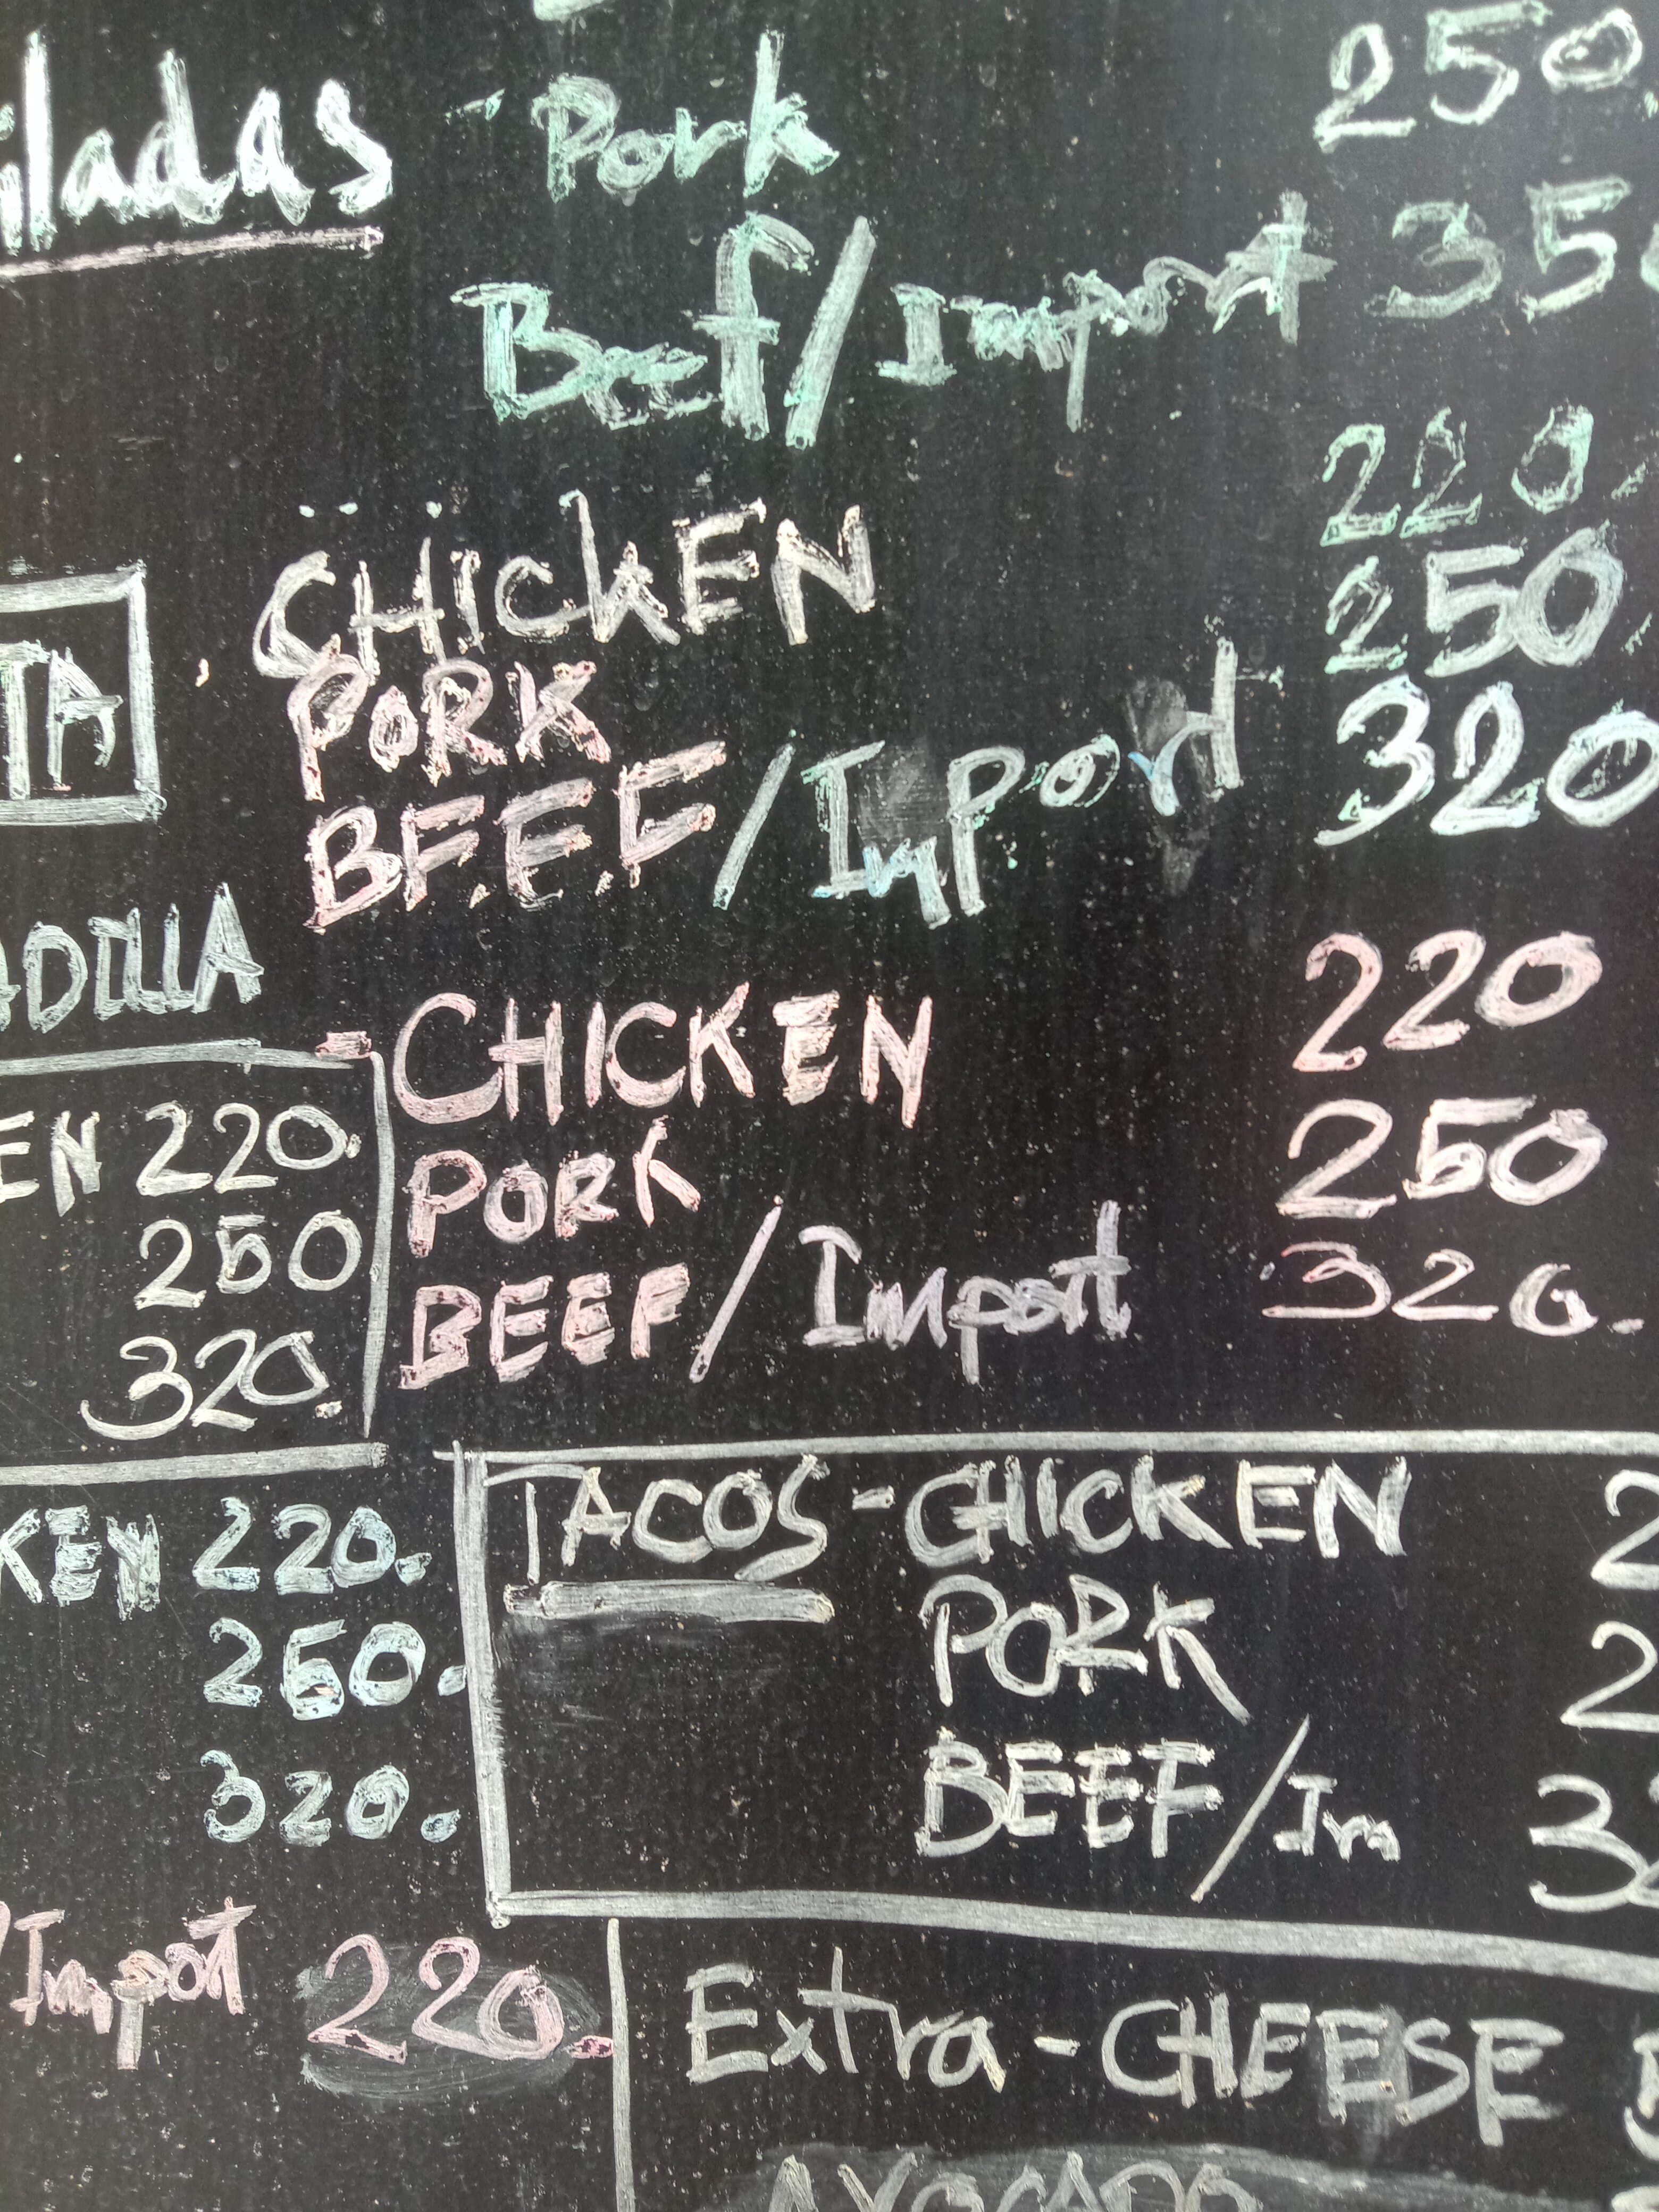 iladas - Pork 250.
Beef/Import 350
CHICKEN 220.
TA PORK 250.
BEEF/Import 320
ADILLA
CHICKEN 220
PORK 250
BEEF/Import 320.
EN 220.
250
320.
TACOS - CHICKEN 2
PORK 2
BEEF/Im 32
KEN 220.
250.
320.
/Import 220.
Extra - CHEESE
AVOCADO